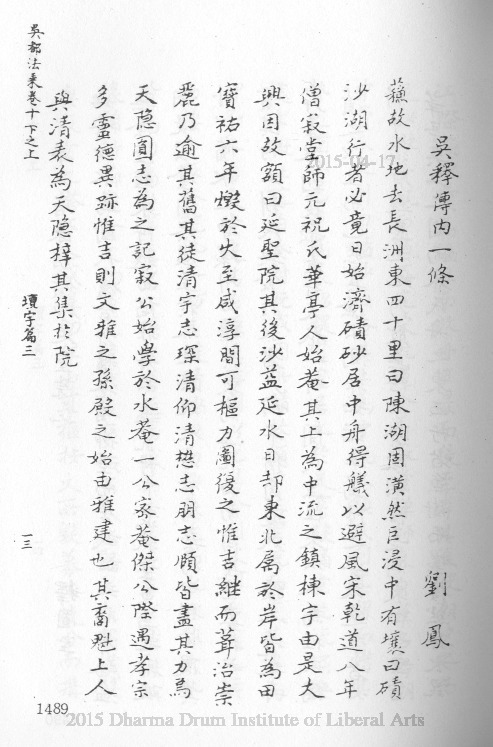 吳都法乘卷十下之上
吳釋傳內一條
劉鳳
蘓故水地去長洲東四十里曰陳湖固潢然巨浸中有壤曰磧
沙湖行者必竟日始濟磧砂居中舟得艤以避風宋乾道八年
僧寂堂師元祝氏華亭人始菴其上為中流之鎮棟宇由是大
興因故額曰延聖院其後沙益延水日却東北属於岸皆為田
寶祐六年燬於火至咸淳間可樞力圖復之惟吉繼而葺治崇
麗乃逾其舊其徒清宇志琛清仰清懋志朋志頤皆盡其力焉
天隐圓志為之記寂公始學於水菴一公家菴傑公陛遇孝宗
多靈德異跡惟吉則文雅之孫殿之始由雅建也其裔魁上人
與清表為天隐梓其集於院
壞字篇三
一三
1489
2015-04-17
2015 Dharma Drum Institute of Liberal Arts